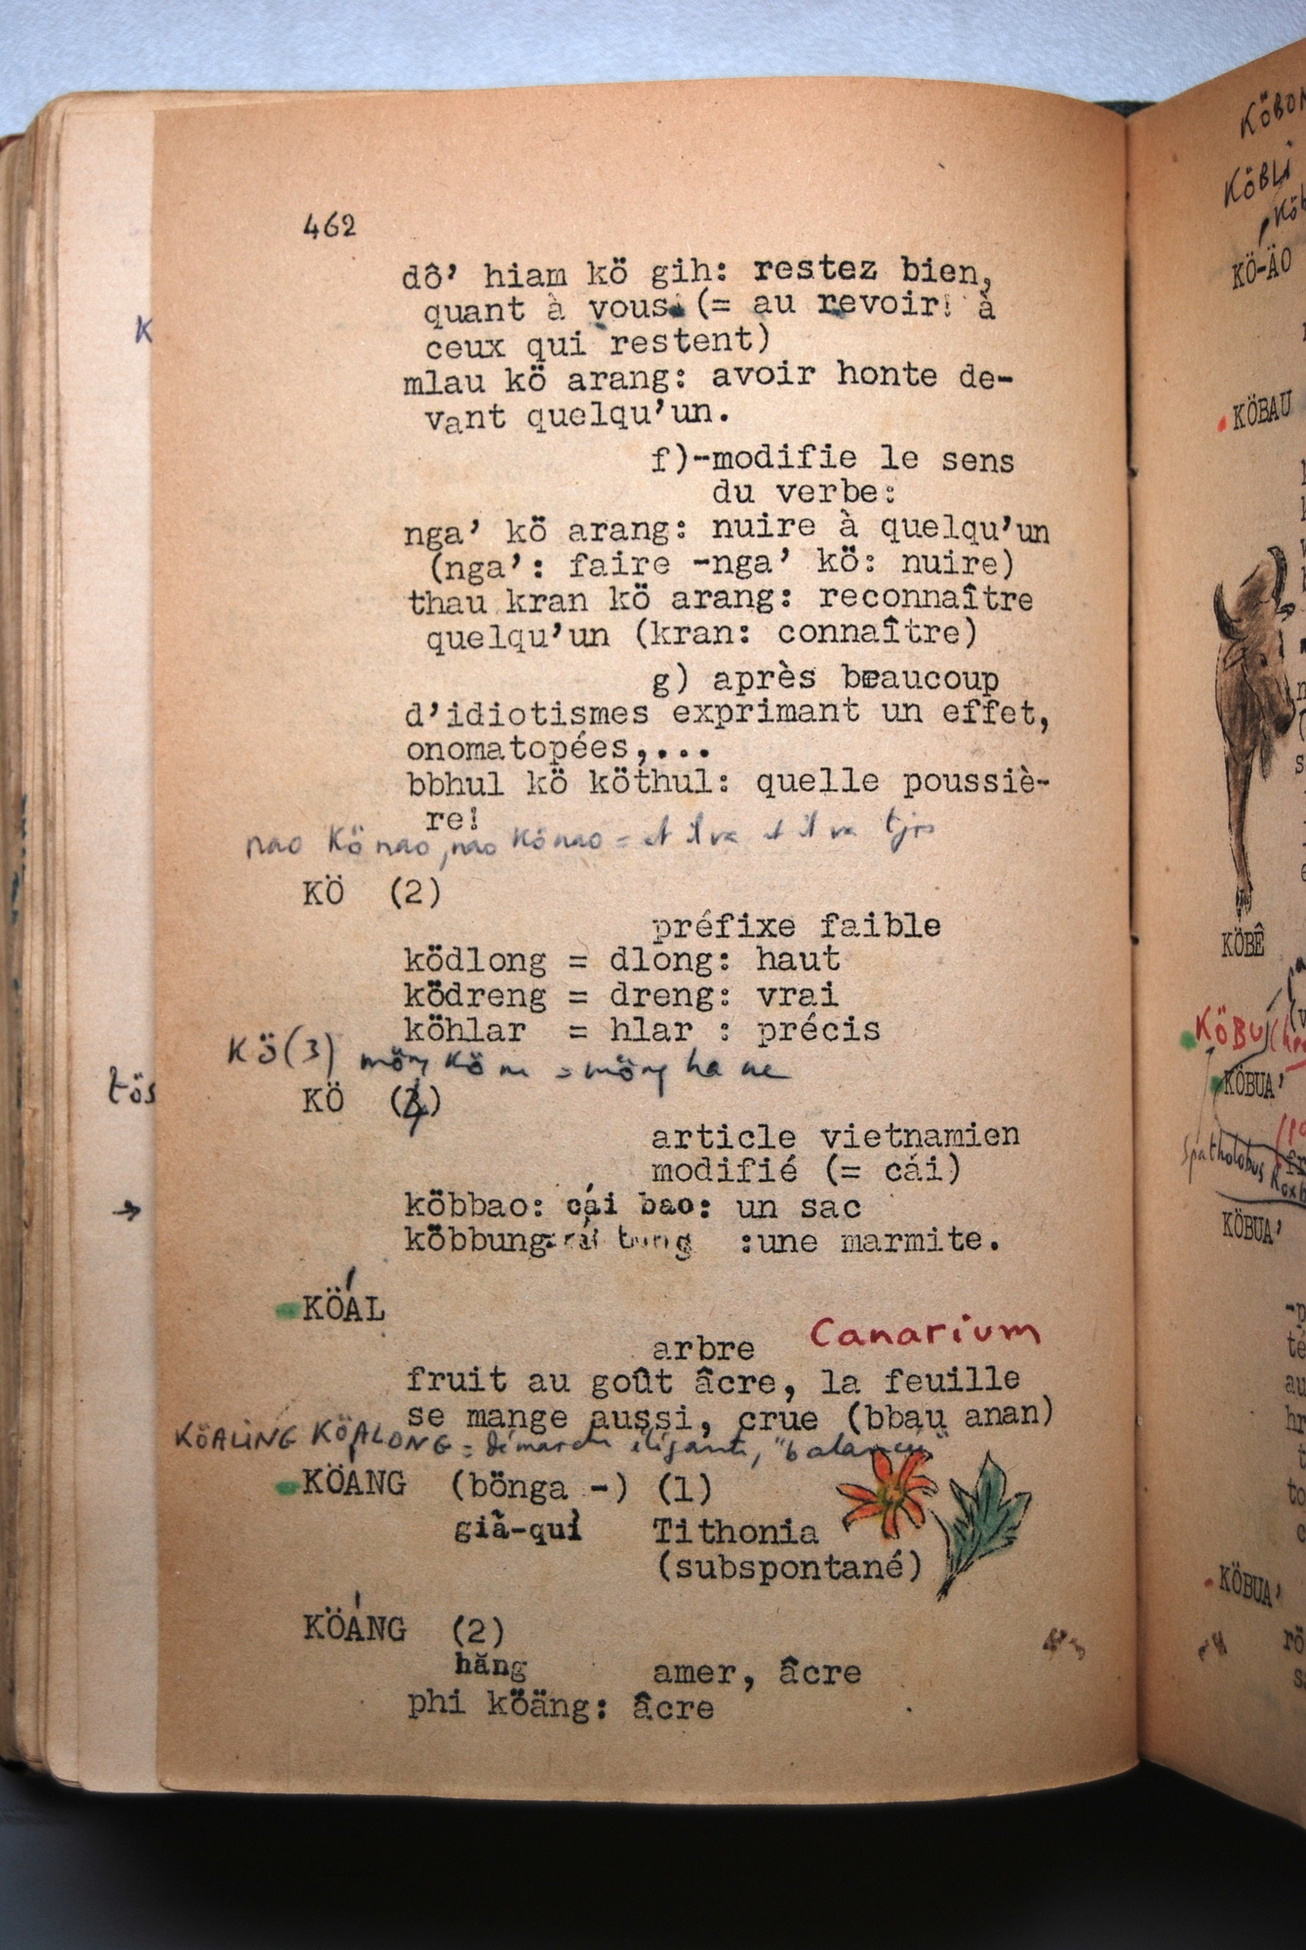 462
dô' hiam kö gih: restez bien,
quant à vous. (= au revoir! à
ceux qui restent)
mlau kö arang: avoir honte de-
vant quelqu'un.
f)-modifie le sens
du verbe:
nga' kö arang: nuire à quelqu'un
(nga': faire -nga' kö: nuire)
thau kran kö arang: reconnaître
quelqu'un (kran: connaître)
g) après beaucoup
d'idiotismes exprimant un effet,
onomatopées,...
bbhul kö köthul: quelle poussiè-
re!
nao Kö nao, nao Kö nao = et il va et il va tjrs
KÖ (2)
préfixe faible
ködlong = dlong: haut
ködreng = dreng: vrai
köhlar = hlar : précis
Kö(3)
KÖ (4)
article vietnamien
modifié (= cái)
köbbao: cái bao: un sac
köbbung: :une marmite.
KÖÁL
arbre Canarium
fruit au goût âcre, la feuille
se mange aussi, crue (bbau anan)
KÖALING KÖALONG = démarche élégante, "balancée"
KÖANG (bönga -) (1)
giã-quì Tithonia
(subspontané)
KÖÁNG (2)
hăng amer, âcre
phi köäng: âcre
K
tös
→
KÖBLI
KÖ-ÄO
KÖBAU
KÖBÊ
KÖBU
KÖBUA'
Spatholobus Roxb
KÖBUA'
KÖBUA'